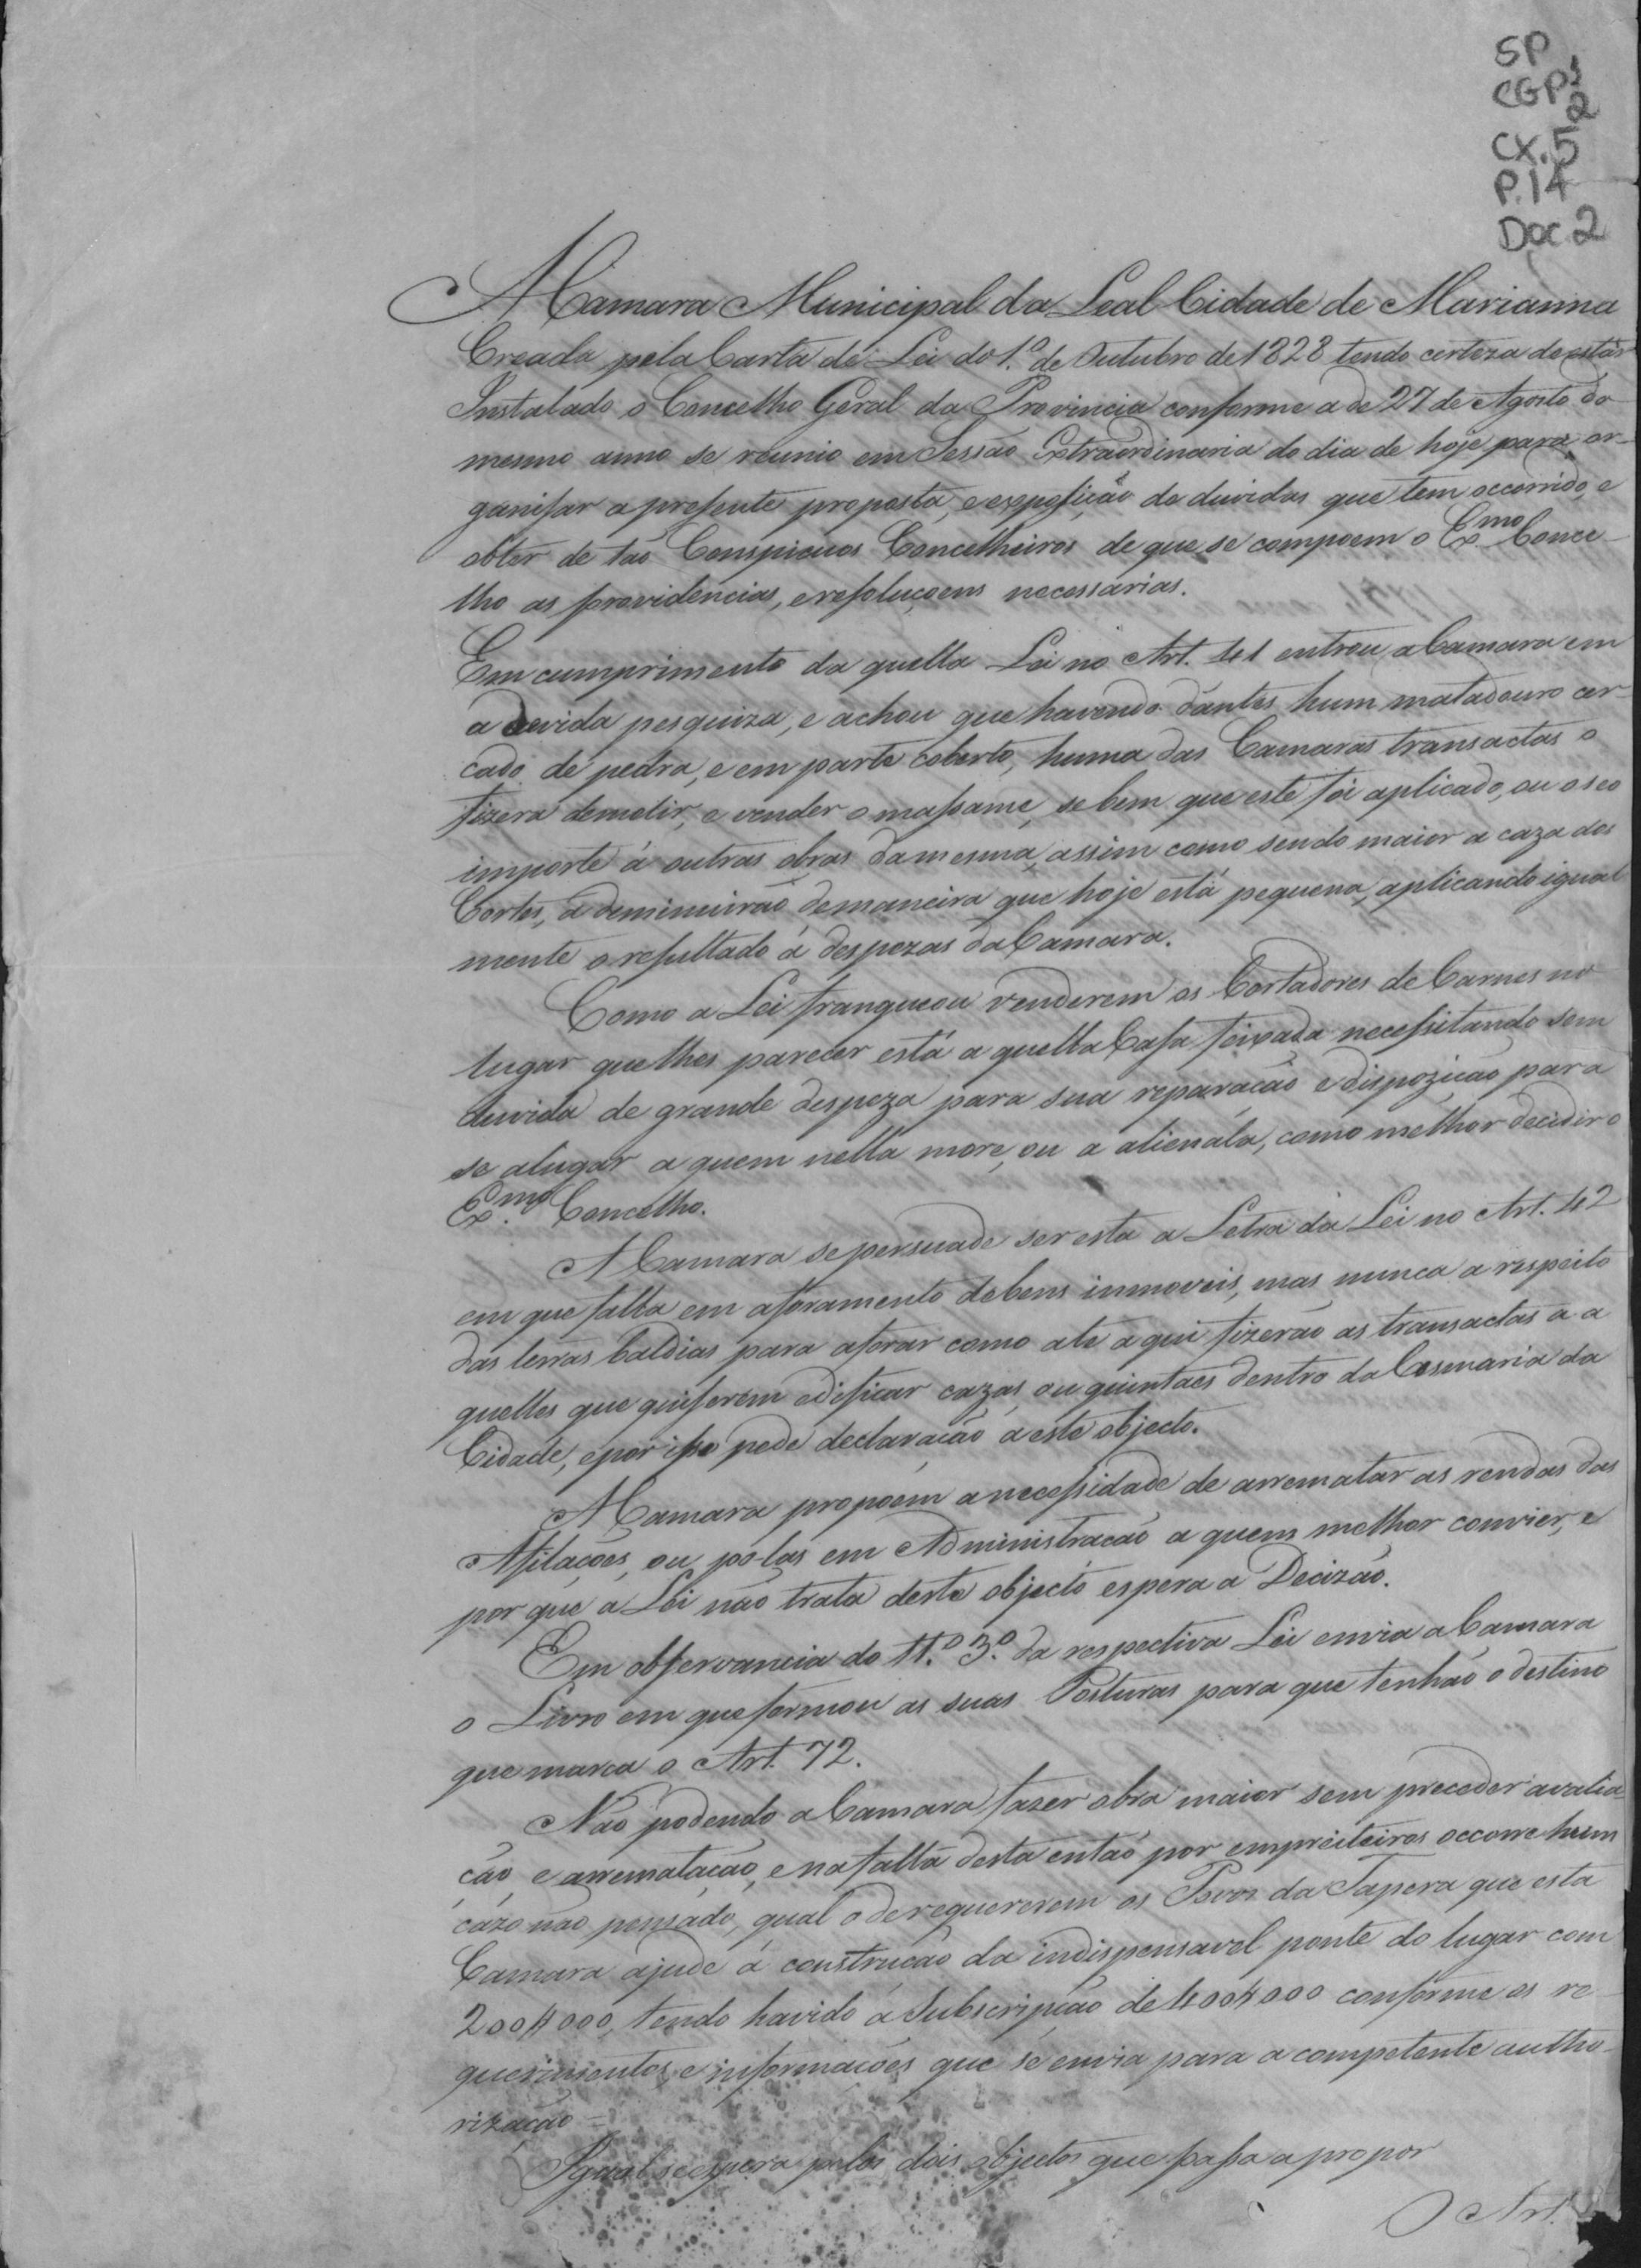 SP
CGP¹
2
CX.5
P.14
Doc 2
A Camara Municipal da Leal Cidade de Marianna
Creada pela Carta de Lei do 1.º de Outubro de 1828 tendo certeza de estár
Instalado o Concelho Geral da Provincia conforme a de 27 de Agosto do
mesmo anno se reunio em Sessão Extraordinaria do dia de hoje para or-
ganisar a presente proposta, e exposição de duvidas que tem occorrido, e
obter de tão Conspicuos Concelheiros de que se compoem o Ex.mo Conce-
lho as providencias, e resoluçoens necessarias.
Em cumprimento da quella Lei no Art. 41 entrou a Camara em
a devida pesquiza, e achou que havendo dantes hum matadouro cer-
cado de pedra, e em parte coberto, huma das Camaras transactas o
fizera demolir, e vender o massame, se bem que este foi aplicado, ou o seo
importe á outras obras da mesma, assim como sendo maior a caza dos
Cortes, a deminuirão demaneira que hoje está pequena, aplicando igual
mente o resultado á despezas da Camara.
Como a Lei franqueou venderem os Cortadores de Carnes no
lugar que lhes parecer está a quella Casa feixada necessitando sem
duvida de grande despeza para sua reparação e dispozição para
se alugar a quem nella more, ou a alienala, como melhor decidir o
Ex.mo Concelho.
A Camara se persuade ser esta a Letra da Lei no Art. 42
em que falla em aforamento de bens immoveis, mas nunca a respeito
das terras baldias para aforar como ate a qui fizerão as transactas a a
quelles que quiserem edificar cazas, ou quintaes dentro da Cesmaria da
Cidade, e por isso pede declaração a este objecto.
A Camara propoem a necessidade de arrematar as rendas das
Afilações, ou po-las em Administração a quem melhor convier, e
por que a Lei não trata deste objecto espera a Decizão.
Em observancia do tt.º 3.º da respectiva Lei envia a Camara
o Livro em que formou as suas Posturas para que tenhão o destino
que marca o Art. 72.
Não podendo a Camara fazer obra maior sem preceder avalia-
ção e arrematação, e na falta desta então por empreiteiros occorre hum
cazo não pensado, qual o de requererem os Povos da Tapera que esta
Camara ajude á construcão da indispensavel ponte do lugar com
200$000, tendo havido a Subscripção de 400$000 conforme os re
querimentos, e informações que se envia para a competente autho-
rização =
Igual se espera pelos dois objectos que passa a propor
O Art.